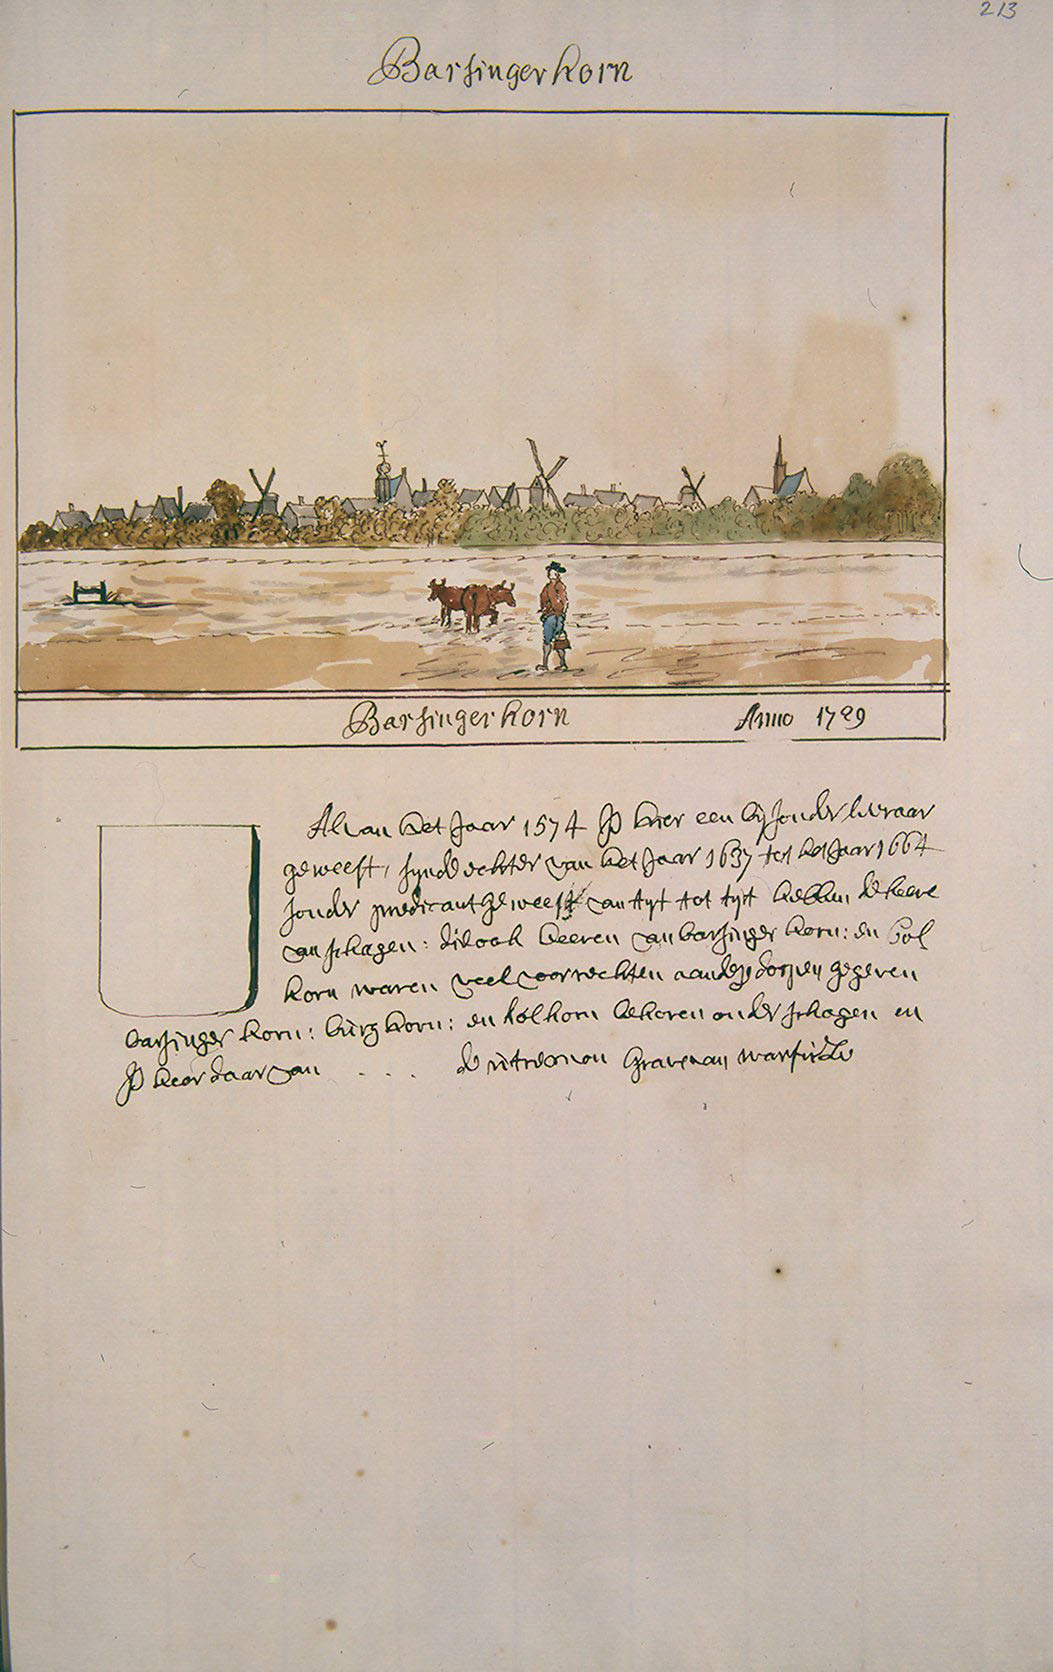 213
Barsingerhorn
Barsingerhorn Anno 1729
Al van het Jaar 1574 Js hier een bijsonder leeraar
geweest, synde echter van het Jaar 1637 tot het Jaar 1664
sonder predicant geweest van tyt tot tyt hebben de heere
van schagen: die ook heeren van barsinger horn: en kol
horn waren veel voorrechten aan dese dorpen gegeven
barsinger horn: burghorn: en kolhorn behoren onder schagen en
Js heer daar van . . . . de Grave van warfusee